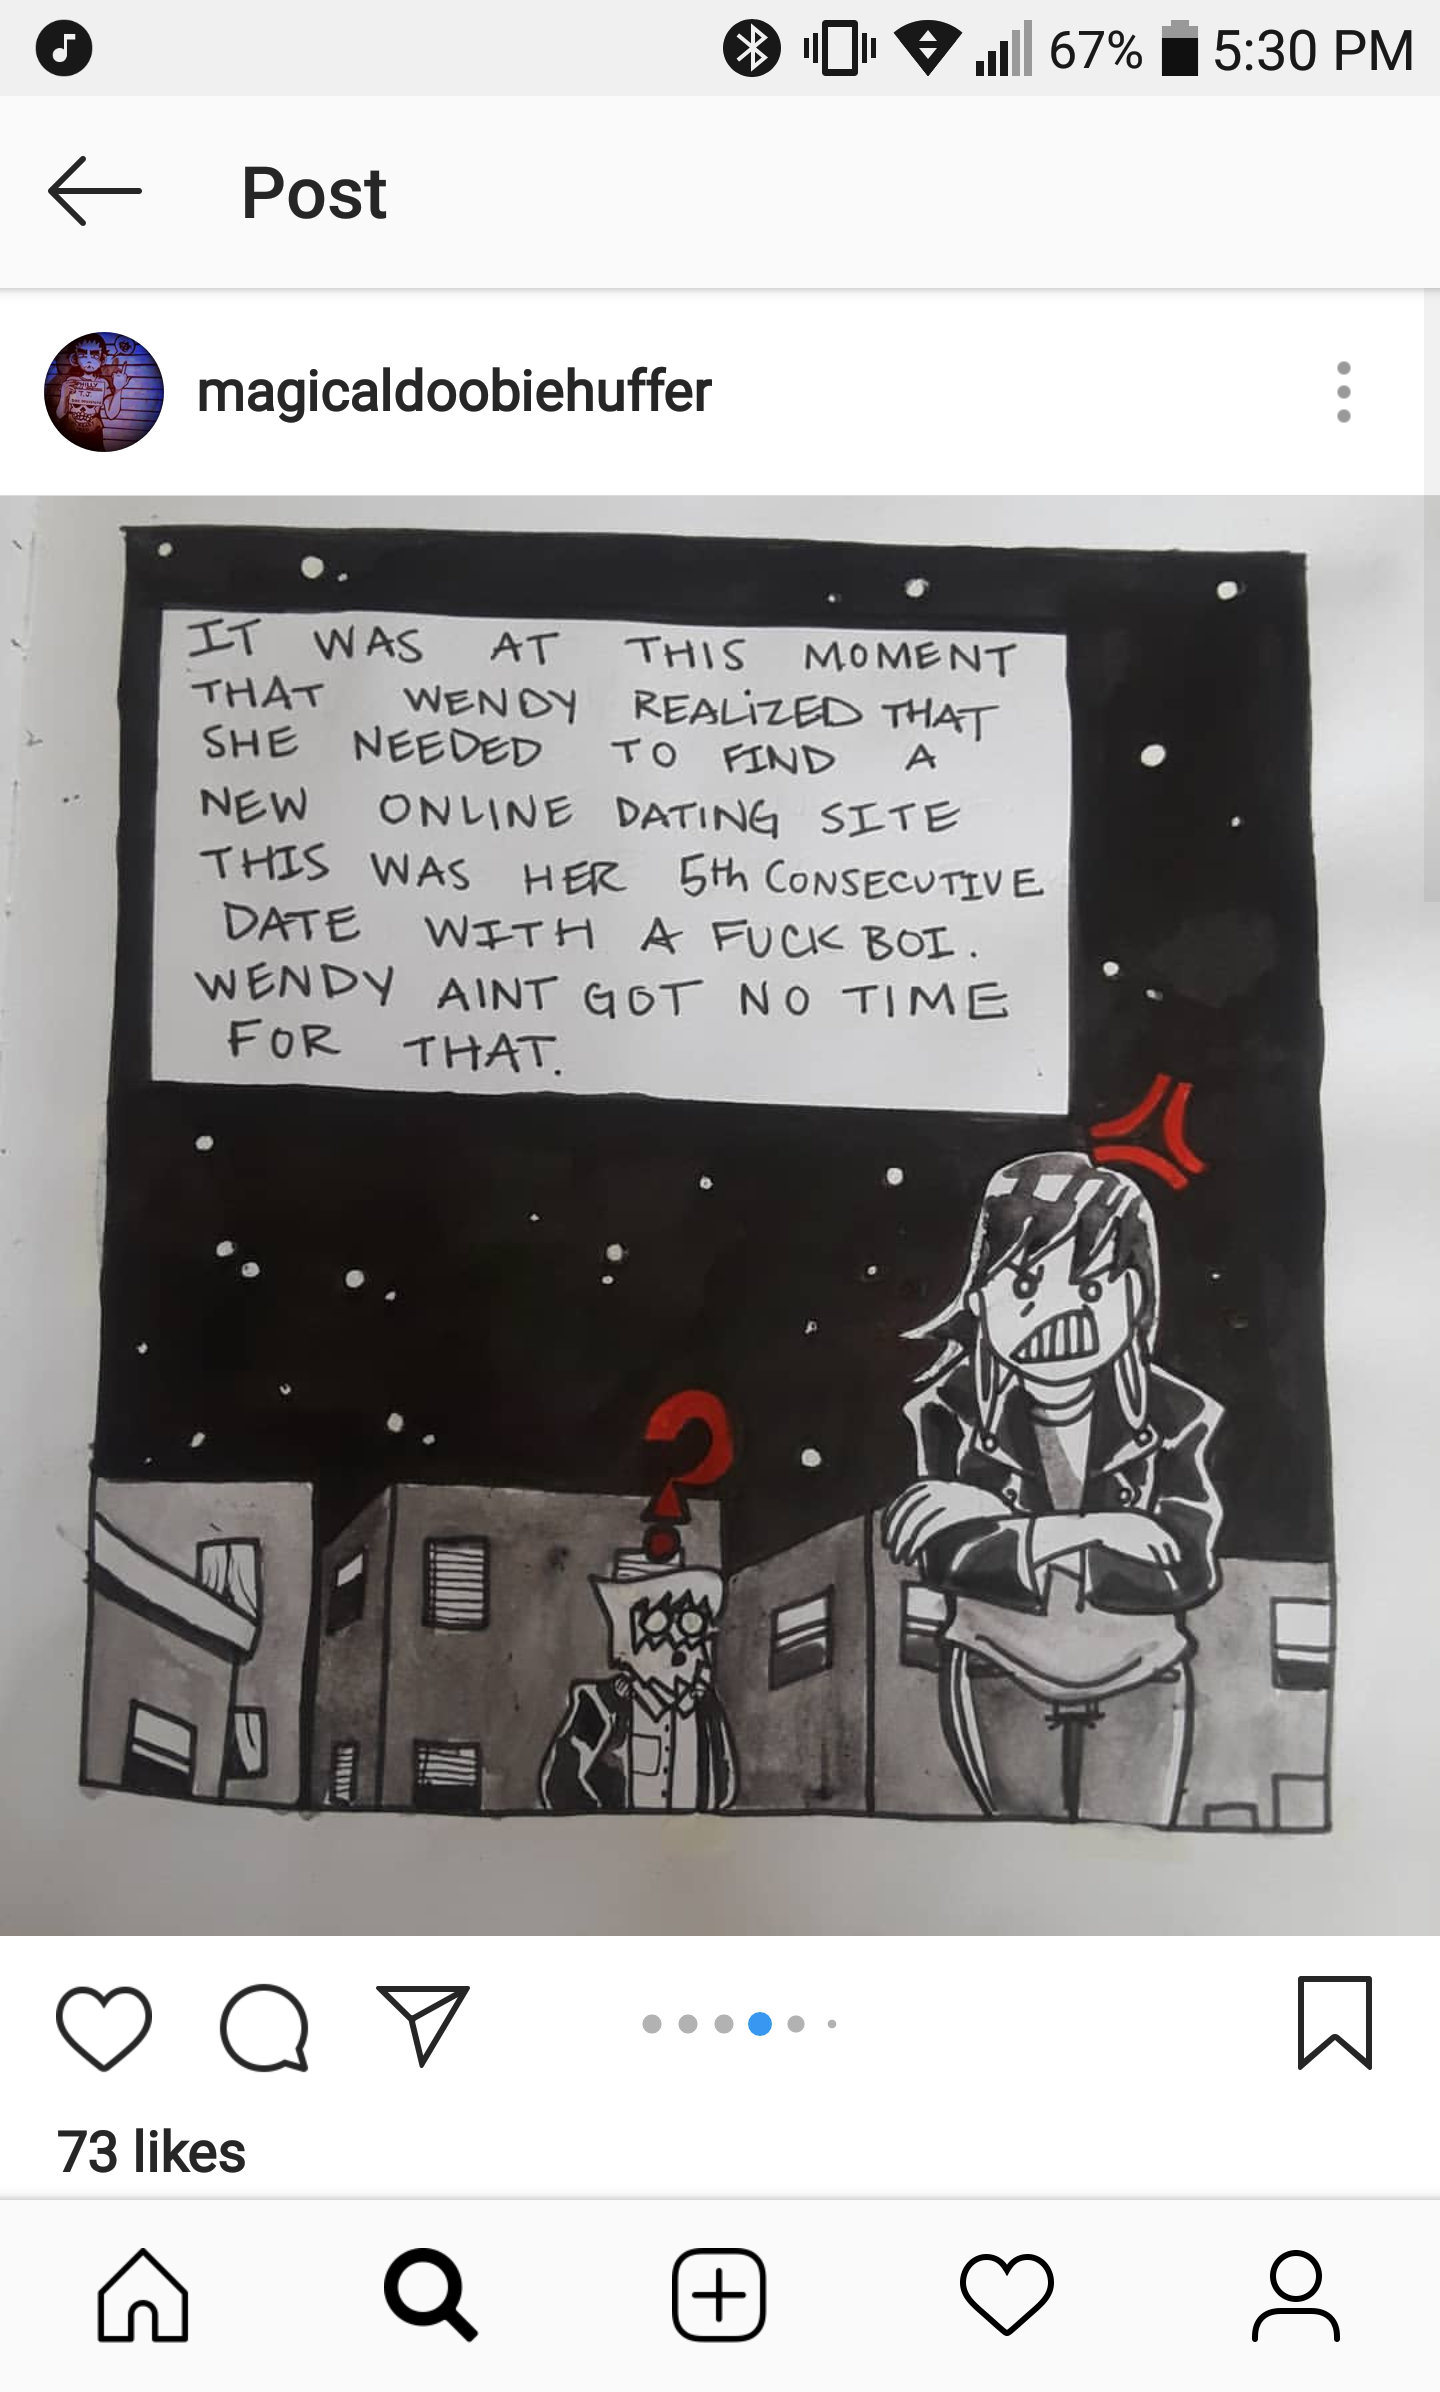 67% 5:30 PM
Post
magicaldoobiehuffer
IT WAS AT THIS MOMENT
THAT WENDY REALIZED THAT
SHE NEEDED TO FIND A
NEW ONLINE DATING SITE
THIS WAS HER 5th CONSECUTIVE
DATE WITH A FUCK BOI.
WENDY AINT GOT NO TIME
FOR THAT.
?
73 likes